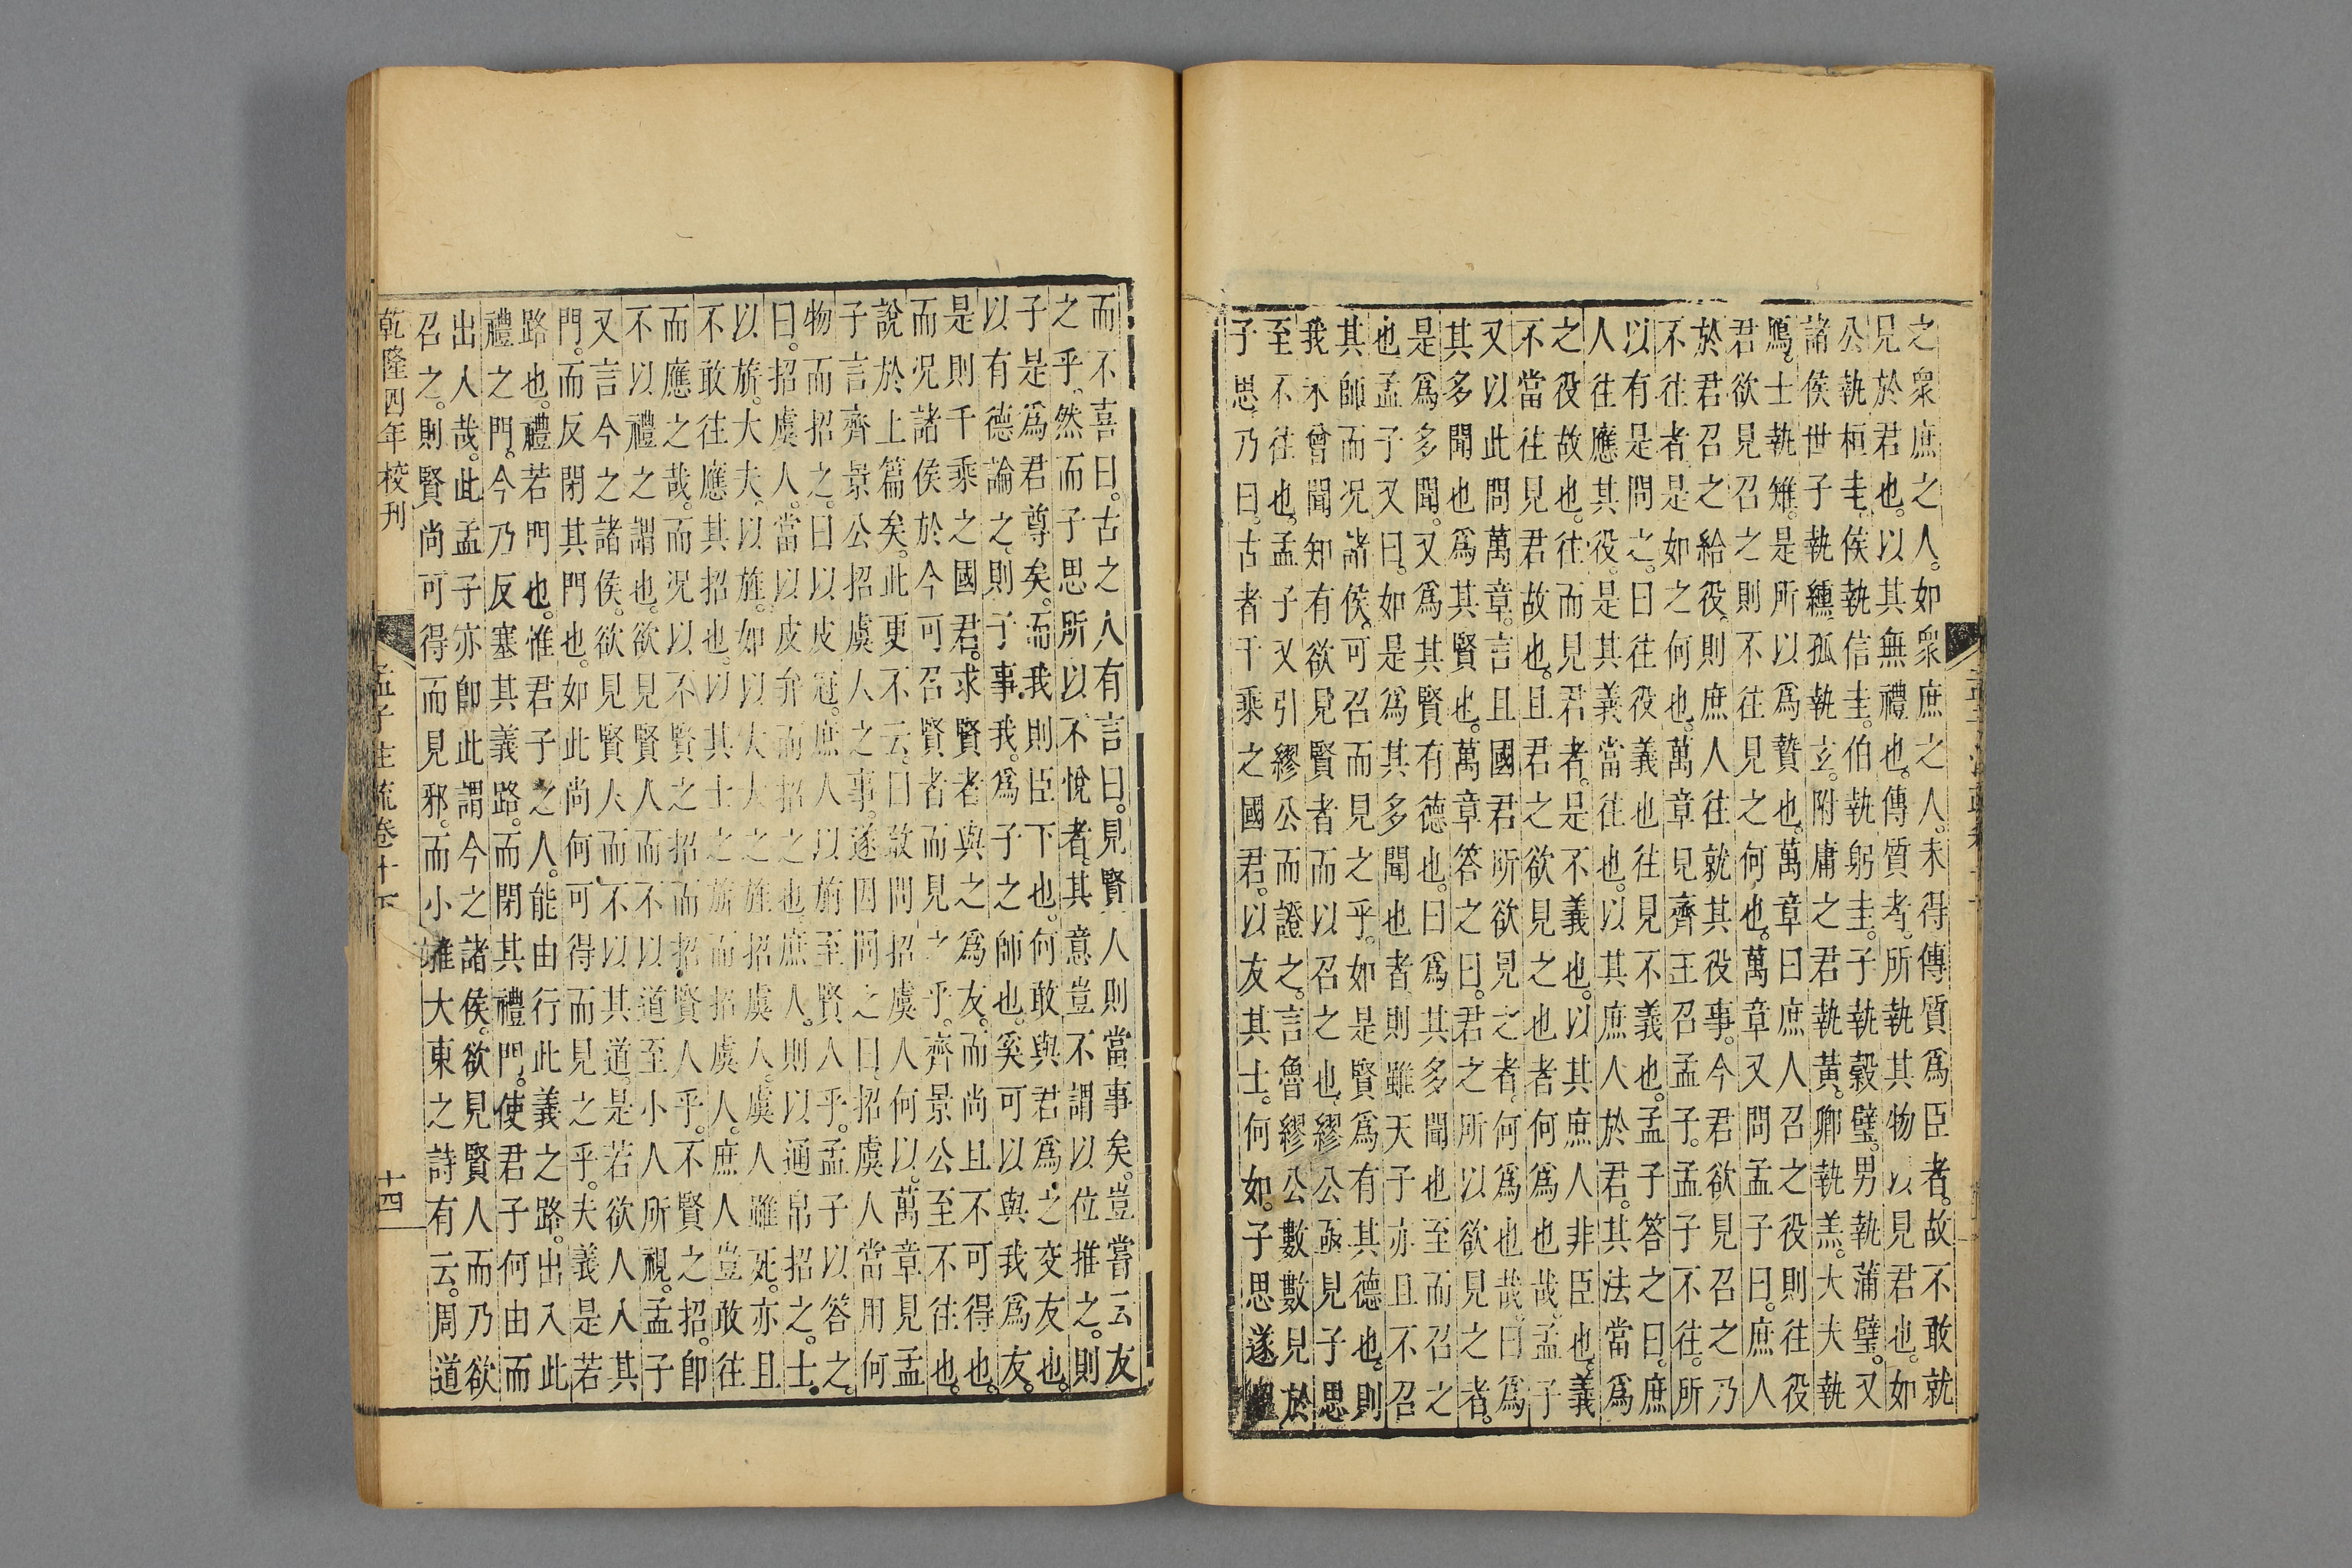 之衆庶之人。如衆庶之人。未得傳質爲臣者。故不敢就
見於君也。以其無禮也。傳質者。所執其物以見君也。如
公執桓圭。侯執信圭。伯執躬圭。子執穀璧。男執蒲璧。又
諸侯世子執纁。孤執玄。附庸之君執黃。卿執羔。大夫執
鴈。士執雉。是所以爲贄也。萬章曰庶人召之役則往役
君欲見召之則不往見之何也。萬章又問孟子曰。庶人
於君召之給役。則庶人往就其役事。今君欲見召之乃
不往者。是如之何也。萬章見齊王召孟子。孟子不往。所
以有是問之。曰往役義也往見不義也。孟子答之曰。庶
人往應其役。是其義當往也。以其庶人於君。其法當爲
之役故也。往而見君者。是不義也。以其庶人非臣也。義
不當往見君故也。且君之欲見之也者何爲也哉。孟子
又以此問萬章。言且國君所欲見之者。何爲也哉。曰爲
其多聞也爲其賢也。萬章答之曰。君之所以欲見之者。
是爲多聞。又爲其賢有德也。曰爲其多聞也至而召之
也孟子又曰。如是爲其多聞也者則雖天子亦且不召
其師而况諸侯。可召而見之乎。如是賢爲有其德也。則
我不曾聞知有欲見賢者而以召之也。繆公亟見子思
至不往也。孟子又引繆公而證之。言魯繆公數數見於
子思。乃曰。古者千乘之國君。以友其士。何如。子思遂
而不喜曰。古之人有言曰。見賢人則當事矣。豈嘗云友
之乎。然而子思所以不悅者。其意豈不謂以位推之。則
子是爲君尊矣。而我則臣下也。何敢與君爲之交友也。
以有德論之。則子事我。爲子之師也。奚可以與我爲友。
是則千乘之國君。求賢者與之爲友。而尚且不可得也。
而况諸侯於今可召賢者而見之乎。齊景公至不往也。
說於上篇矣。此更不云。曰敢問招虞人何以。萬章見孟
子言齊景公招虞人之事。遂因問之曰。招虞人當用何
物而招之。曰以皮冠。庶人以旃至賢人乎。孟子以答之
曰。招虞人。當以皮弁而招之也。庶人。則以通帛招之。士
以旂。大夫。以旌。如以大夫之旌招虞人。虞人雖死。亦且
不敢往應其招也。以其士之旂而招虞人。庶人豈敢往
而應之哉。而况以不賢之招而招賢人乎。不賢之招。即
不以禮之謂也。欲見賢人而不以道至小人所視。孟子
又言今之諸侯。欲見賢人而不以其道。是若欲人人其
門。而反閉其門也。如此尚何可得而見之乎。夫義是若
路也。禮若門也。惟君子之人。能由行此義之路。出入此
禮之門。今乃反塞其義路。而閉其禮門。使君子何由而
出人哉。此孟子亦卽此謂今之諸侯。欲見賢人而乃欲
召之。則賢尚可得而見邪。而小雅大東之詩有云。周道
乾隆四年校刊
孟子注疏卷十下
十四